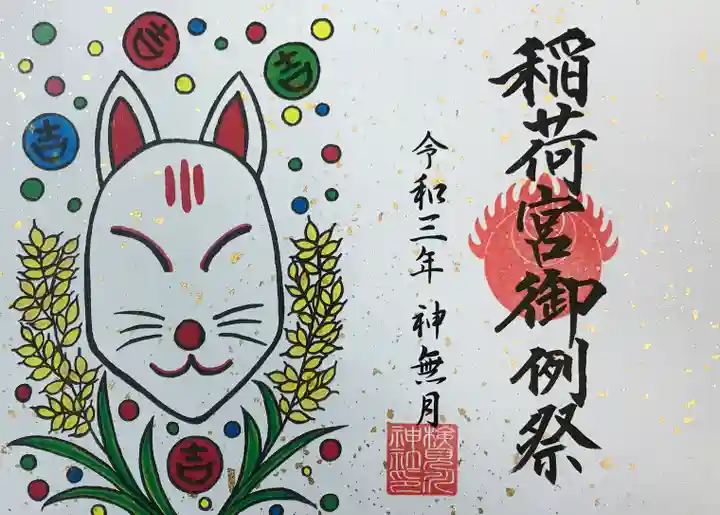 稲荷宮御例祭
令和三年 神無月
検見川
神社印
吉
吉
吉
吉